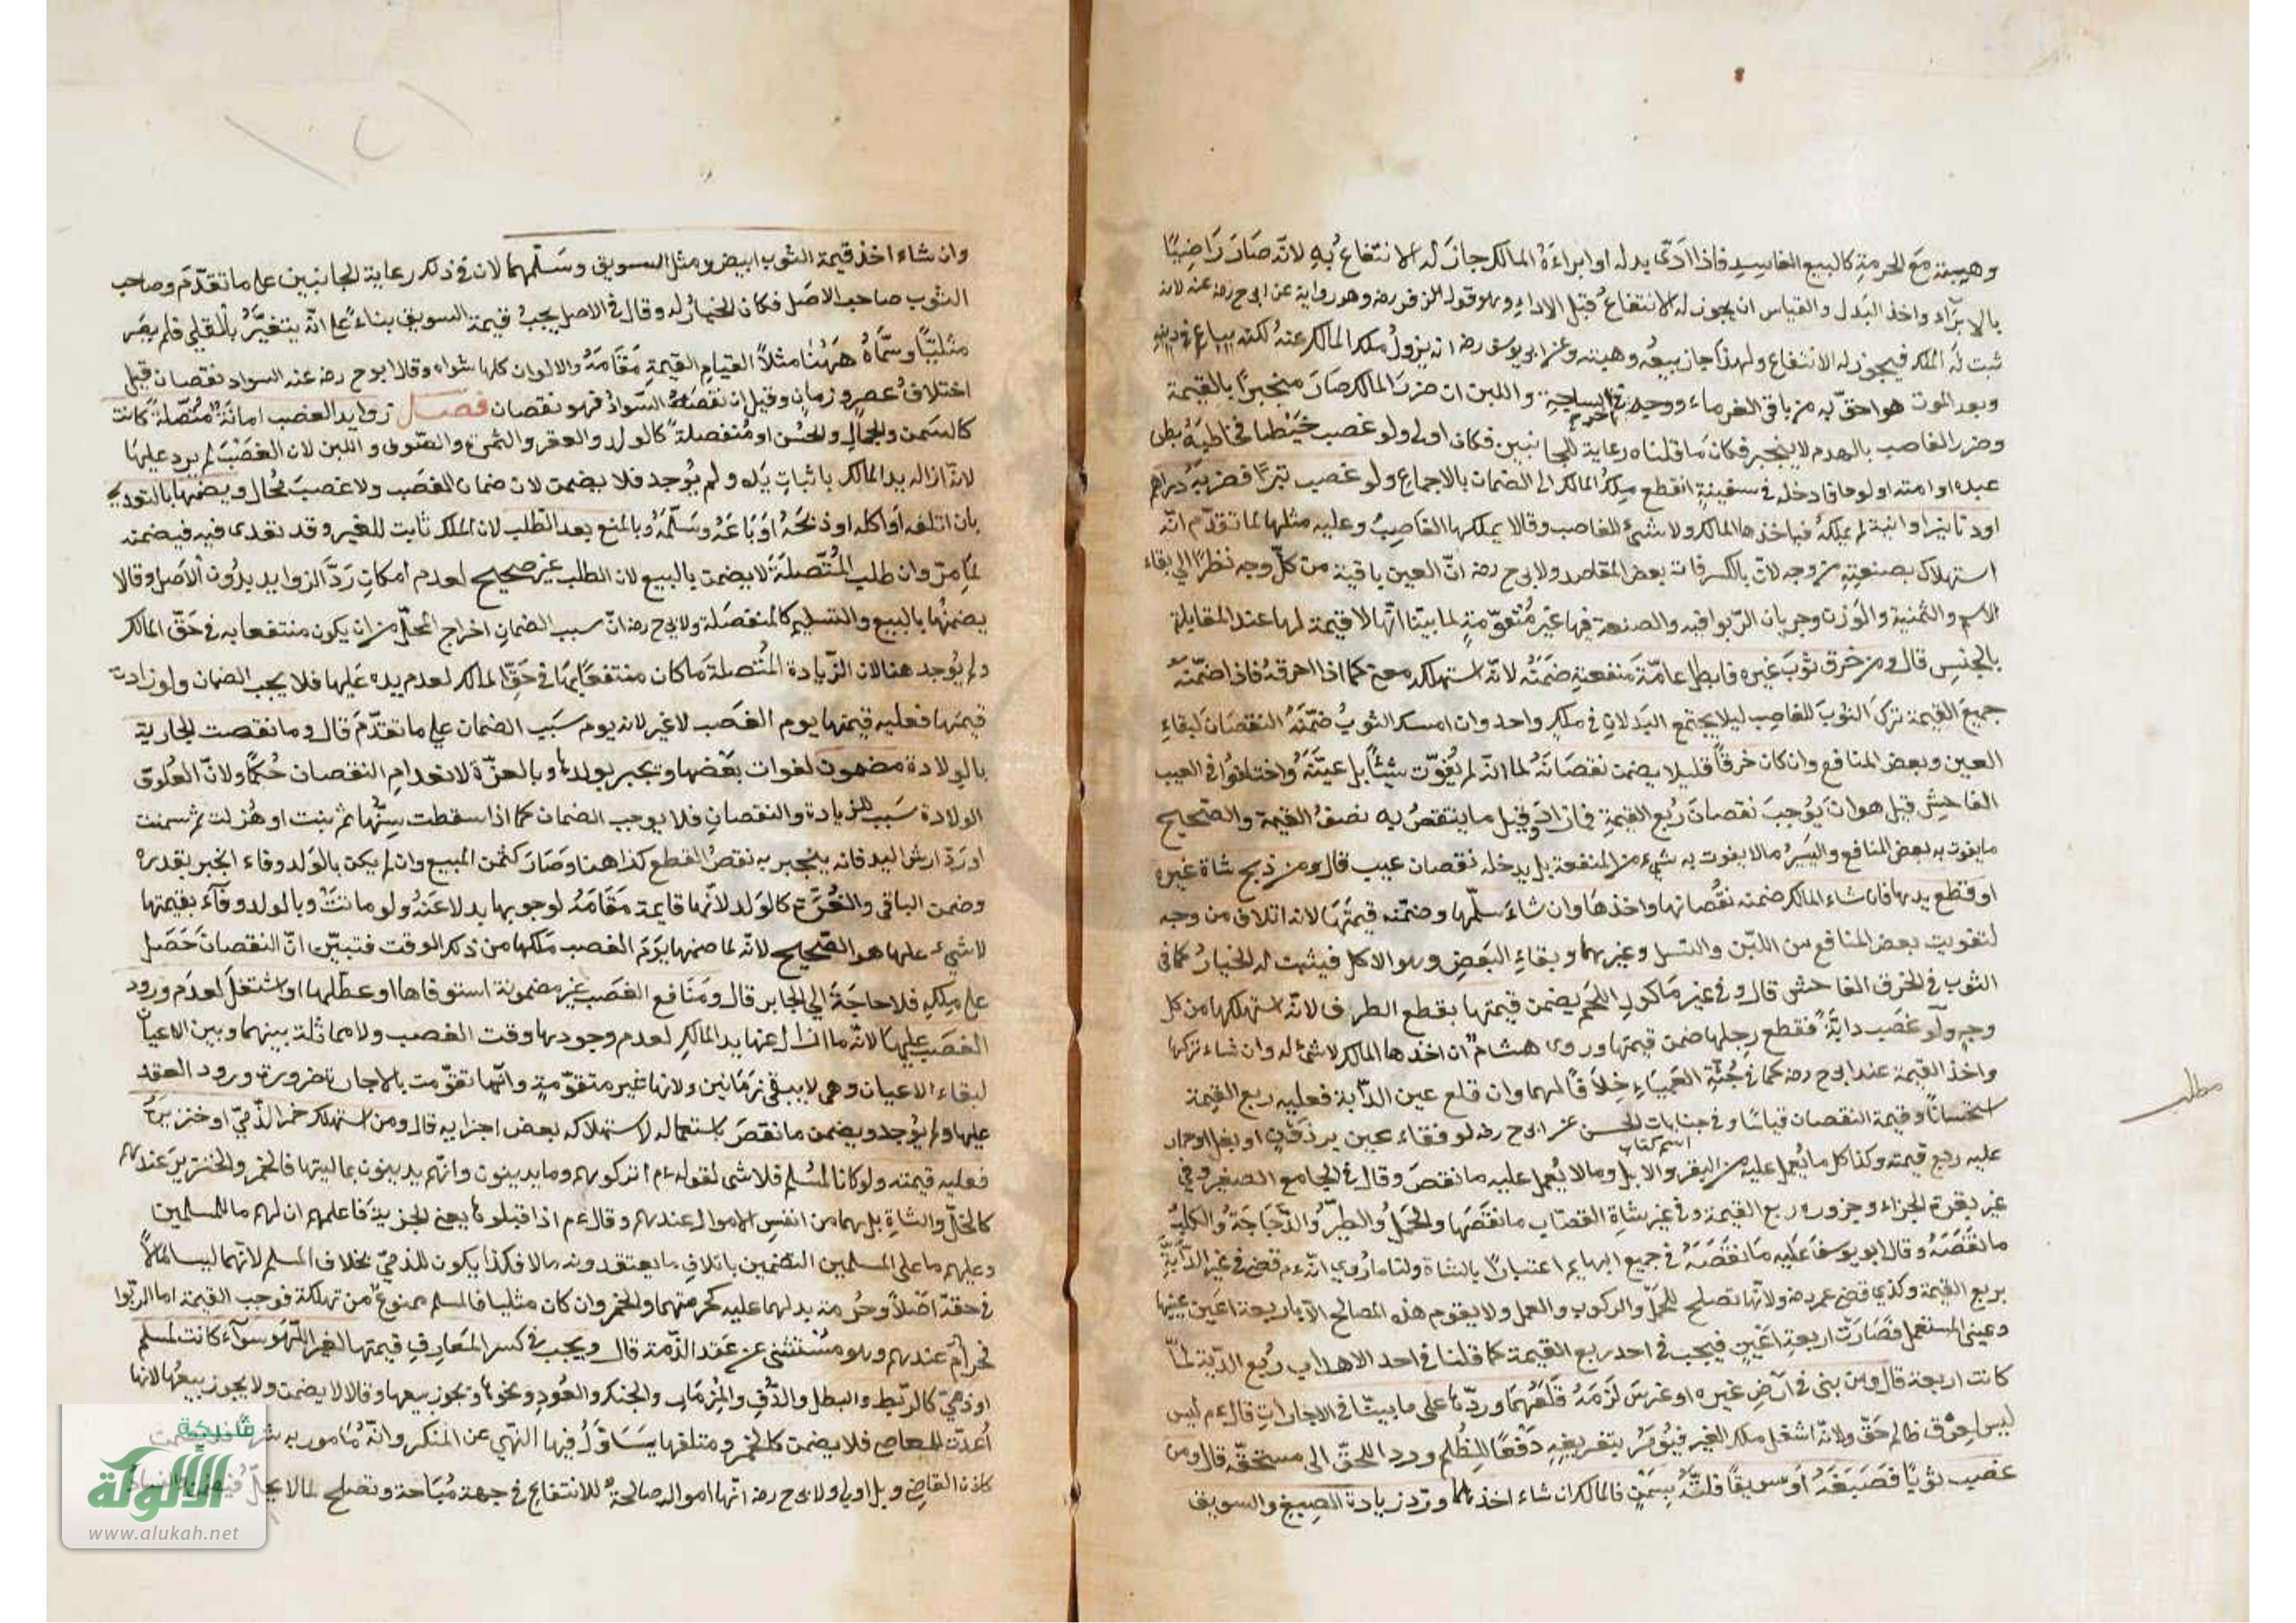 وهيبته مع الحرمة كالبيع الفاسد فاذا ادّى بدله او ابراءه المالك جاز له الانتفاع به لانه صار راضيًا
بالابراء واخذ البدل والقياس ان يجوز له الانتفاع قبل الاداء وهو قول زفر رضه وهو رواية عن ابى ح رضه عنه لانه
ثبت له الملك فيجوز له الانتفاع ولهذا جاز بيعه وهبته وعن ابى يوسف رضه انه يزول ملك المالك عنه لكنه يباع فى دينه
وبعد الموت هو احق به من باقى الغرماء ووجهه فى الساجة اخرج واللبن ان ضرر المالك صار منجبرًا بالقيمة
وضرر الغاصب بالهدم لا ينجبر فكان ما قلناه رعاية للجانبين فكان اولى ولو غصب خيطا فخاط به بطن
عبده او امته او لوحا فادخله فى سفينة انقطع ملك المالك الى الضمان بالاجماع ولو غصب تبرًا فضربه دراهم
او دنانير او انية لم يملكه فياخذها المالك ولا شئ للغاصب وقالا يملكها الغاصب وعليه مثلها لما تقدّم انّه
استهلاك بصنعته من وجه لان بالكسر فات بعض المقاصد ولابى ح رضه انّ العين باقية من كلّ وجه نظرًا الى بقاء
الاسم والثمنية والوزن وجريان الربوا فيه والصنعة فيها غير متقوّمة لما بيّنا انّها لا قيمة لها عند المقابلة
بالجنس قال ومن خرق ثوب غيره فابطل عامّة منفعته ضمنه لانّه استهلكه معنى كما اذا احرقه فاذا ضمّنه
جميع القيمة ترك الثوب للغاصب ليلا يجتمع البدلان فى ملك واحد وان امسك الثوب ضمّنه النقصان لبقاء
العين وبعض المنافع وان كان خرقًا قليلا يضمن نقصانه لما انّه لم يفوّت شيئًا بل عيّبه واختلفوا فى العيب
الفاحش قيل هو ان يوجب نقصان ربع القيمة فما زاد وقيل ما ينتقص به نصف القيمة والصحيح
ما يفوت به بعض المنافع واليسير ما لا يفوت به شىء من المنفعة بل يدخله نقصان عيب قال ومن ذبح شاة غيره
او قطع يدها فان شاء المالك ضمنه نقصانها واخذها وان شاء سلّمها وضمّنه قيمتها لانه اتلاف من وجه
لتفويت بعض المنافع من اللبن والنسل وغيرهما وبقاء البعض وهو الاكل فيثبت له الخيار كما فى
الثوب فى الخرق الفاحش قال وفى غير ماكول اللحم يضمن قيمتها بقطع الطرف لانّه استهلكها من كل
وجه ولو غصب دابّة فقطع رجلها ضمن قيمتها وروى هشام ان اخذها المالك لا شئ له وان شاء تركها
واخذ القيمة عند ابى ح رضه كما فى جثّة العمياء خلافًا لهما وان قلع عين الدّابة فعليه ربع القيمة
استحسانا وقيمة النقصان قياسًا وفى جنايات الحسن عن ابى ح رضه لو فقاء عين برذون او بغل او حمار
اسم كتاب
عليه ربع قيمته وكذا كل ما يعمل عليه من البقر والابل وما لا يعمل عليه ما نقص وقال فى الجامع الصغير وفى
غير بقرة الجزار وجزوره ربع القيمة وفى غير شاة القصّاب ما نقصها والحمل والطير والدجاجة والكلب
ما نقصه وقال ابو يوسف عليه ما نقصه فى جميع البهايم اعتبارًا بالشاة ولنا ما روي انّه ءم قضى فى عين الدّابّة
بربع القيمة وكذى قضى عمر رضه ولانّها تصلح للحمل والركوب والعمل ولا يقوم هذه المصالح الا باربعة اعين عينها
وعينى المستعمل فصارت اربعة اعين فيجب فى احد ربع القيمة كما قلنا فى احد الاهداب ربع الدّية لمّا
كانت اربعة قال ومن بنى فى ارض غيره او غرس لزمه قلعهما وردّها على ما بيّنا فى الاجارات قال ءم ليس
ليس لعرق ظالم حقّ ولانّه اشغل ملك الغير فيؤمر بتفريغه دفعًا للظلم ورد اللحقّ الى مستحقّه قال ومن
غصب ثوبًا فصبغه او سويقًا فلتّه بسمن فالمالك ان شاء اخذها وردّ زيادة الصبغ والسويق
مطلب
وان شاء اخذ قيمة الثوب ابيض ومثل السويق وسلّمهما لان فى ذلك رعاية الجانبين على ما تقدّم وصاحب
الثوب صاحب الاصل فكان الخيار له وقال فى الاصل يجب قيمة السويق بناءً على انّه يتغيّر بالقلى فلم يبق
مثليّا وسمّاه ههنا مثلًا لقيام القيمة مقامه والالوان كلها سواء وقال ابو ح رضه عنه السواد نقصان قيل
اختلاف عصر وزمان وقيل ان نقصه السواد فهو نقصان فصل زوايد الغصب امانة متّصلة كانت
كالسمن والجمال والحسن او منفصلة كالولد والعقر والثمرة والصّوف واللبن لان الغصب لم يرد عليها
لانّه ازالة يد المالك باثبات يده ولم يوجد فلا يضمن لان ضمان الغصب ولا غصب محال ويضمنها بالتعدى
بان اتلفه او اكله او ذبحه او باعه وسلّمه وبالمنع بعد الطلب لان الملك ثابت للغير وقد تعدى فيه فيضمنه
لما مرّ وان طلب المتّصلة لا يضمن بالبيع لان الطلب غير صحيح لعدم امكان ردّ الزوايد بدون الاصل وقالا
يضمنها بالبيع والتسليم كالمنفصلة ولابى ح رضه انّ سبب الضمان اخراج المحلّ من ان يكون منتفعا به فى حقّ المالك
ولم يوجد هنا لان الزّيادة المتّصلة ما كان منتفعًا بها فى حقّ المالك لعدم يده عليها فلا يجب الضمان ولو زادت
قيمتها فعليه قيمتها يوم الغصب لا غير لانه يوم سبب الضمان على ما تقدّم قال وما نقصت الجارية
بالولادة مضمون لفوات بعضها وتجبر بولدها وبالغرّة لانعدام النقصان حكمًا ولانّ العلوق
الولادة سبب للزيادة والنقصان فلا يوجب الضمان كما اذا سقطت سنّها ثم نبت او هزلت ثم سمنت
او ردّ ارش اليد فانه ينجبر به نقص القطع كذا هنا وصار كثمن المبيع وان لم يكن بالولد وفاء انجبر بقدره
وضمن الباقى والغرّة كالولد لانّها قايمة مقامه لوجوبها بدلا عنه ولو ماتت وبالولد وفاء بقيمتها
لا شىء عليها هو الصّحيح لانّه لما ضمنها يوم الغصب ملكها من ذلك الوقت فتبيّن انّ النقصان حصل
على ملكه فلا حاجة الى الجابر قال ومنافع الغصب غير مضمونة استوفاها او عطّلها او اشتغل لعدم ورود
الغصب عليها لانّه ما ازال عنها يد المالك لعدم وجودها وقت الغصب ولا مماثلة بينهما وبين الاعيان
لبقاء الاعيان وهى لا يبقى زمانين ولانها غير متقوّمة وانّما تقوّمت بالاجارة ضرورة ورود العقد
عليها ولم يوجد ويضمن ما نقص باستعماله لاستهلاكه بعض اجزايه قال ومن استهلك خمر الذّمّى او خنزيره
فعليه قيمته ولو كانا لمسلم فلا شى لقوله ءم اتركوهم وما يدينون وانّهم يدينون بماليتها فالخمر والخنزير عندهم
كالخلّ والشاة بل هما من انفس الاموال عندهم وقال ءم اذا قبلوها يعنى الجزية فاعلمهم ان لهم ما للمسلمين
وعليهم ما على المسلمين التضمين باتلاف ما يعتقدونه مالا فكذا يكون للذمّى بخلاف المسلم لانّهما ليسا مالًا
فى حقّه اصلًا وحرمة بدلهما عليه كحرمتهما والخمر وان كان مثليا فالمسلم ممنوع من تملكة فوجب القيمة اما الربوا
فحرام عندهم وهو مستثنى عن عقد الذّمة قال ويجب فى كسر المعازف قيمتها لغير اللهو سواء كانت لمسلم
او ذمّى كالبربط والطبل والدّف والمزمار والجنك والعود ونحوها ويجوز بيعها وقالا لا يضمن ولا يجوز بيعها لانها
اعدّت للمعاصى فلا يضمن كالخمر ومتلفها يتاوّل فيها النّهى عن المنكر وانّه مأمور به شرعًا فلا يضمن
كاذن القاضى وبل اولى ولابى ح رضه انّها اموال صالحة للانتفاع فى جهة مباحة وتصلح لما لا يحلّ فيضمن
شبكة
الألوكة
www.alukah.net